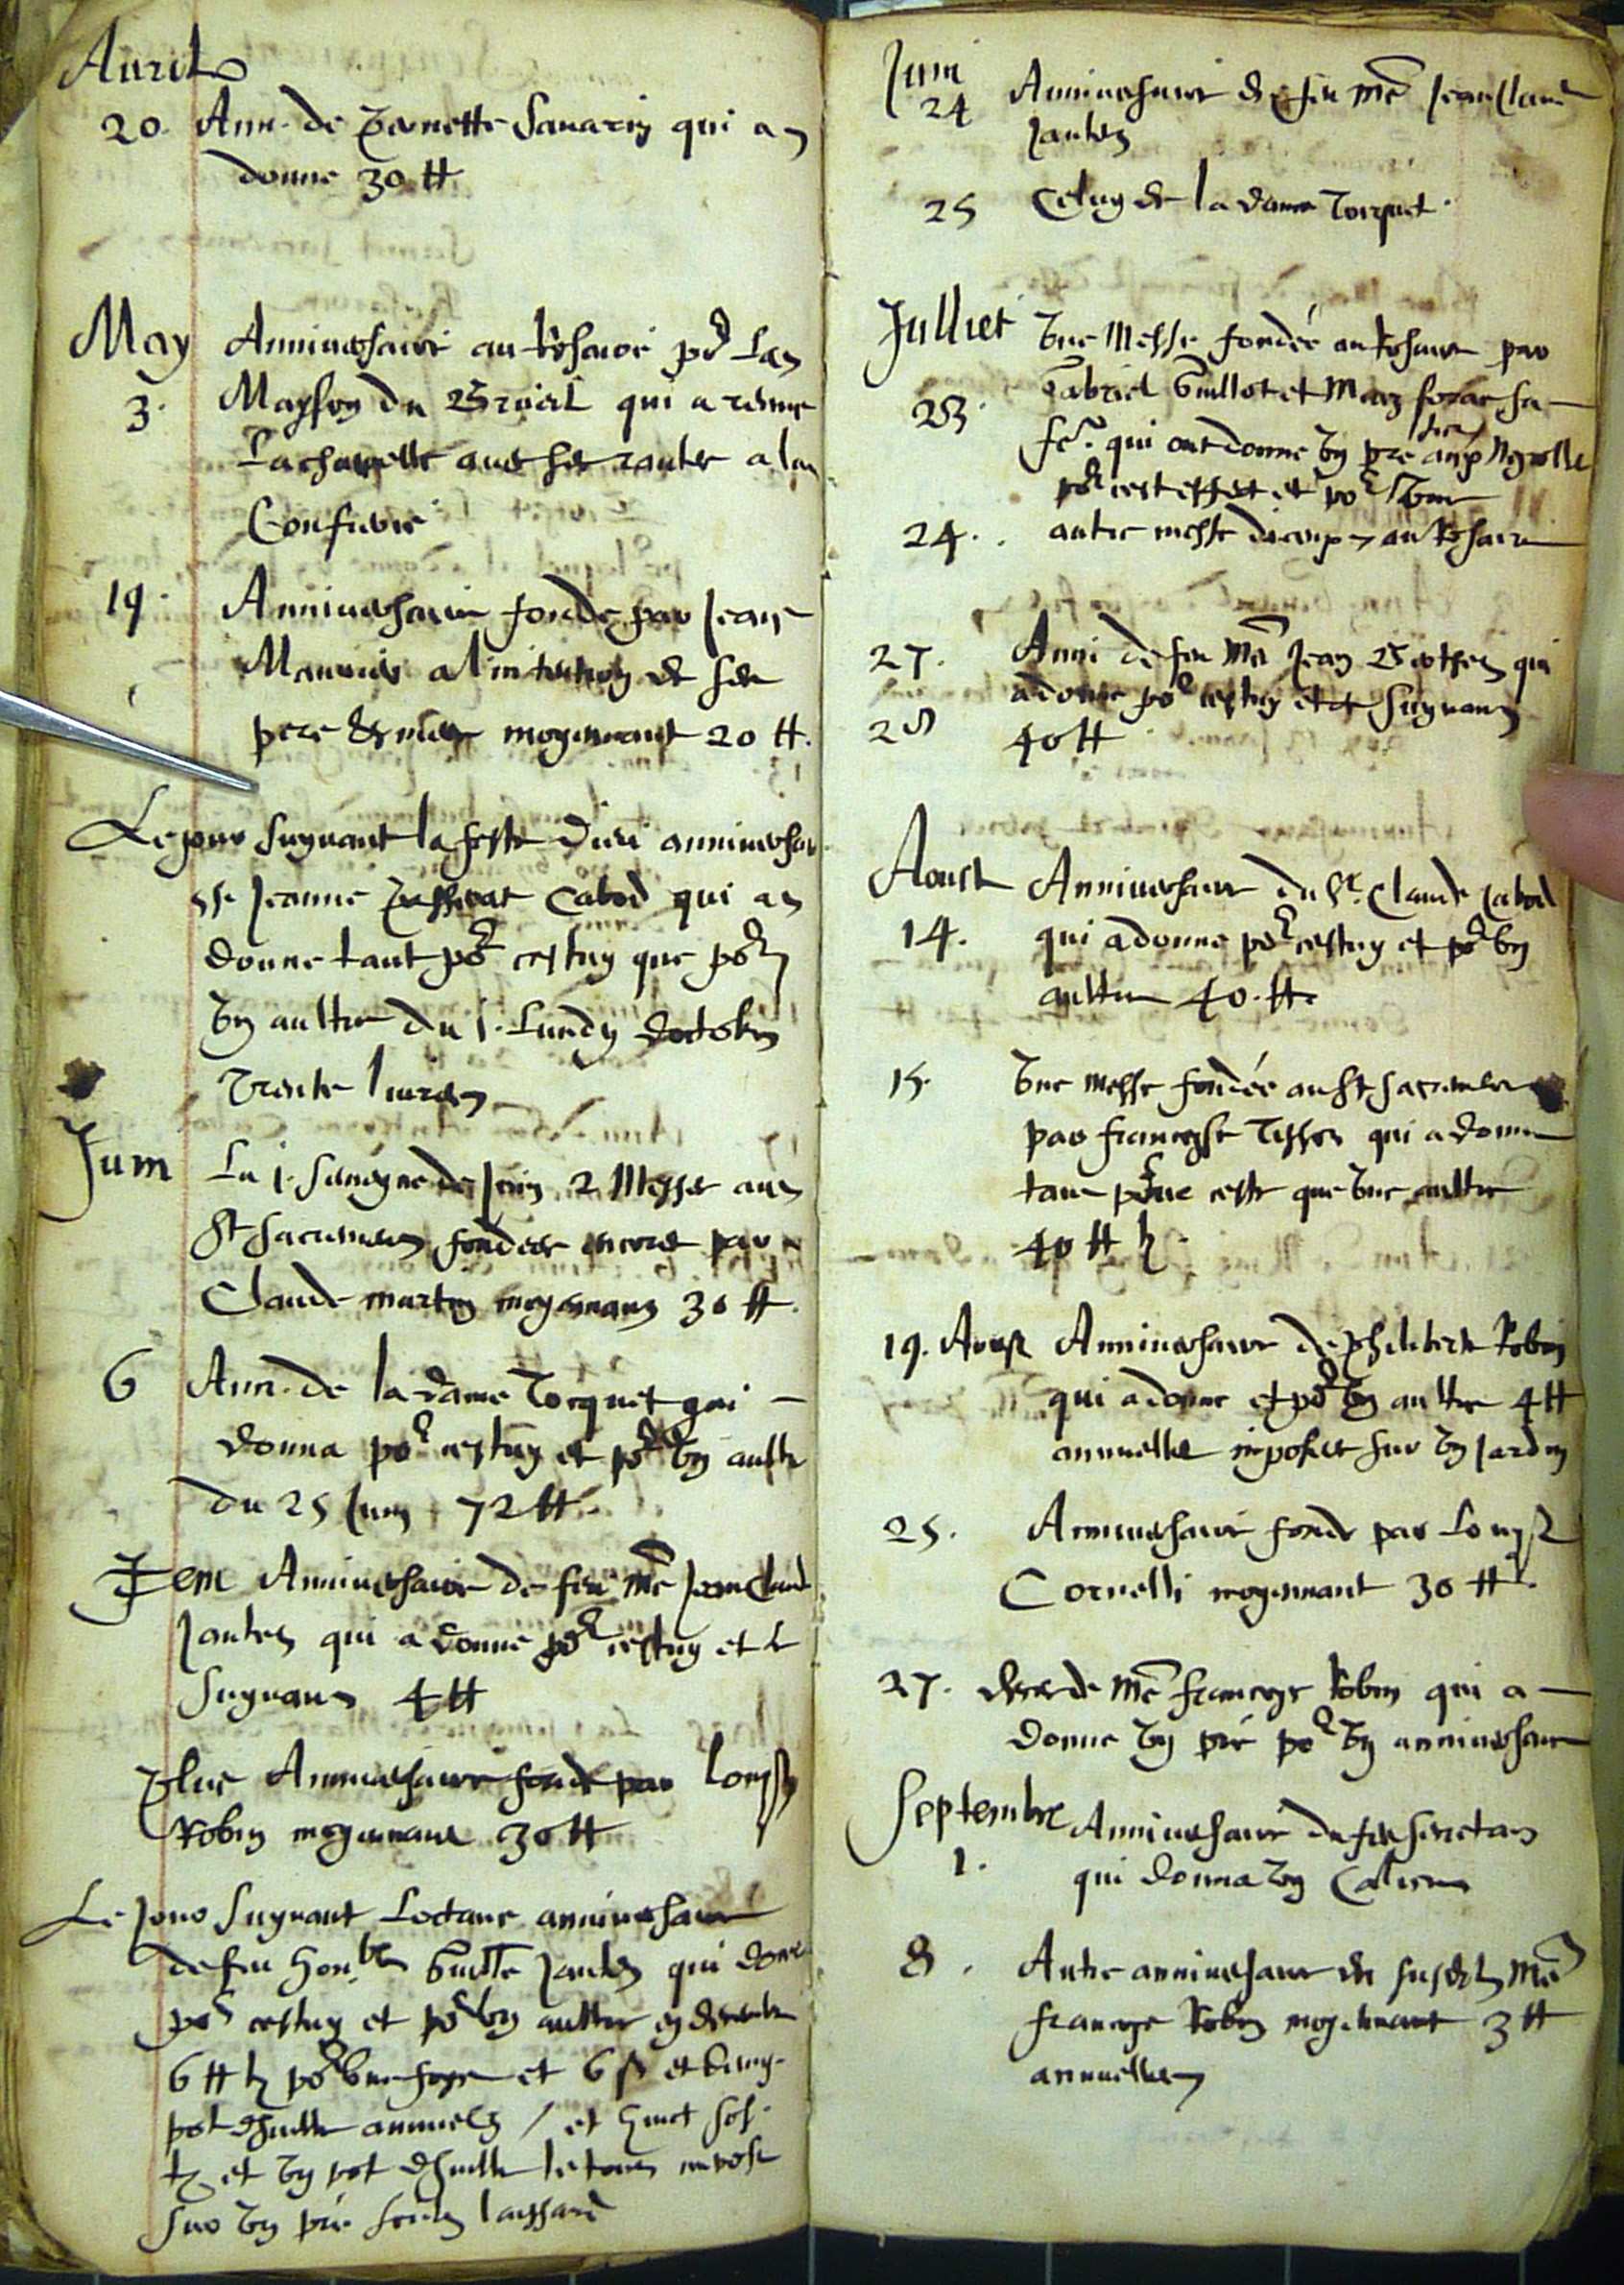 Auril
20. Ann. de Pernette Sauarin qui a
donne 30 tt
May Anniuersaire au Rosaire por la
3. Mayson du Brueil qui a remis
la chapelle auec ses rantes a la
Confrerie
19. Anniuersaire fonde par Jean
Mauris a l'intention de ses
pere & mere moyennant 20 tt.
Le jour suyuant la feste Dieu anniuersair
Jeanne Cabod qui a
donne tant por cestuy que por
vn aultre du 1. Lundy doctobre
Trente liures
Juin La 1. semayne de Juin 2 Messes au
St Sacrement fondees encores par
Claude martin moyennant 30 tt.
6 Ann. de la dame Tocquet qui
donna por cestuy et por vn aultre
du 25 Juin 72 tt.
Item Anniuersaire de feu Me Jean Claude
Jantes qui a donne por cestuy et le
suyuant 4 tt
Plus Anniuersaire fonde par Louyse
Robin moyennant 30 tt
Le jour suyuant Loctaue anniuersaire
de feu honble Guille Jantes qui donne
por cestuy et por vn aultre
6 tt por vne foys et 6 ß et demy
pot d'huille annuels / et huict sols
tz et vn pot d'huille le tout impose
sur vn pré
Juin Anniuersaire de feu Me Jean Claude
24 Jantes
25 Celuy de la dame Torquet.
Julliet Vne Messe fondée au Rosaire par
23. Gabriel Guillot et sa
fe. qui ont donne vn pre
por cest effect et por vne
24. autre messe au Rosaire
27. Anni de feu Me Jean Berthet qui
a donne por cestuy et le suyuant
28 40 tt
Aoust Anniuersaire du Sr. Claude Cabod
14. qui a donne por cestuy et por vn
aultre 40. tt.
15. Vne messe fondée au St Sacrement
par Francoyse Tissot qui a donne
tant pour ceste que vne aultre
40 tt
19. Aoust Anniuersaire de Philiberte Robin
qui a donne et por vn aultre 4 tt
annuelles imposees sur vn jardin
25. Anniuersaire fonde par Louyse
Cornelli moyennant 30 tt.
27. de Me Francoys Robin qui a
donne vn pré por vn anniuersaire
Septembre Anniuersaire de feu Secretan
1. qui donna vn Calice
8. Autre anniuersaire du susdit Me
Francoys Robin moyennant 3 tt
annuelles